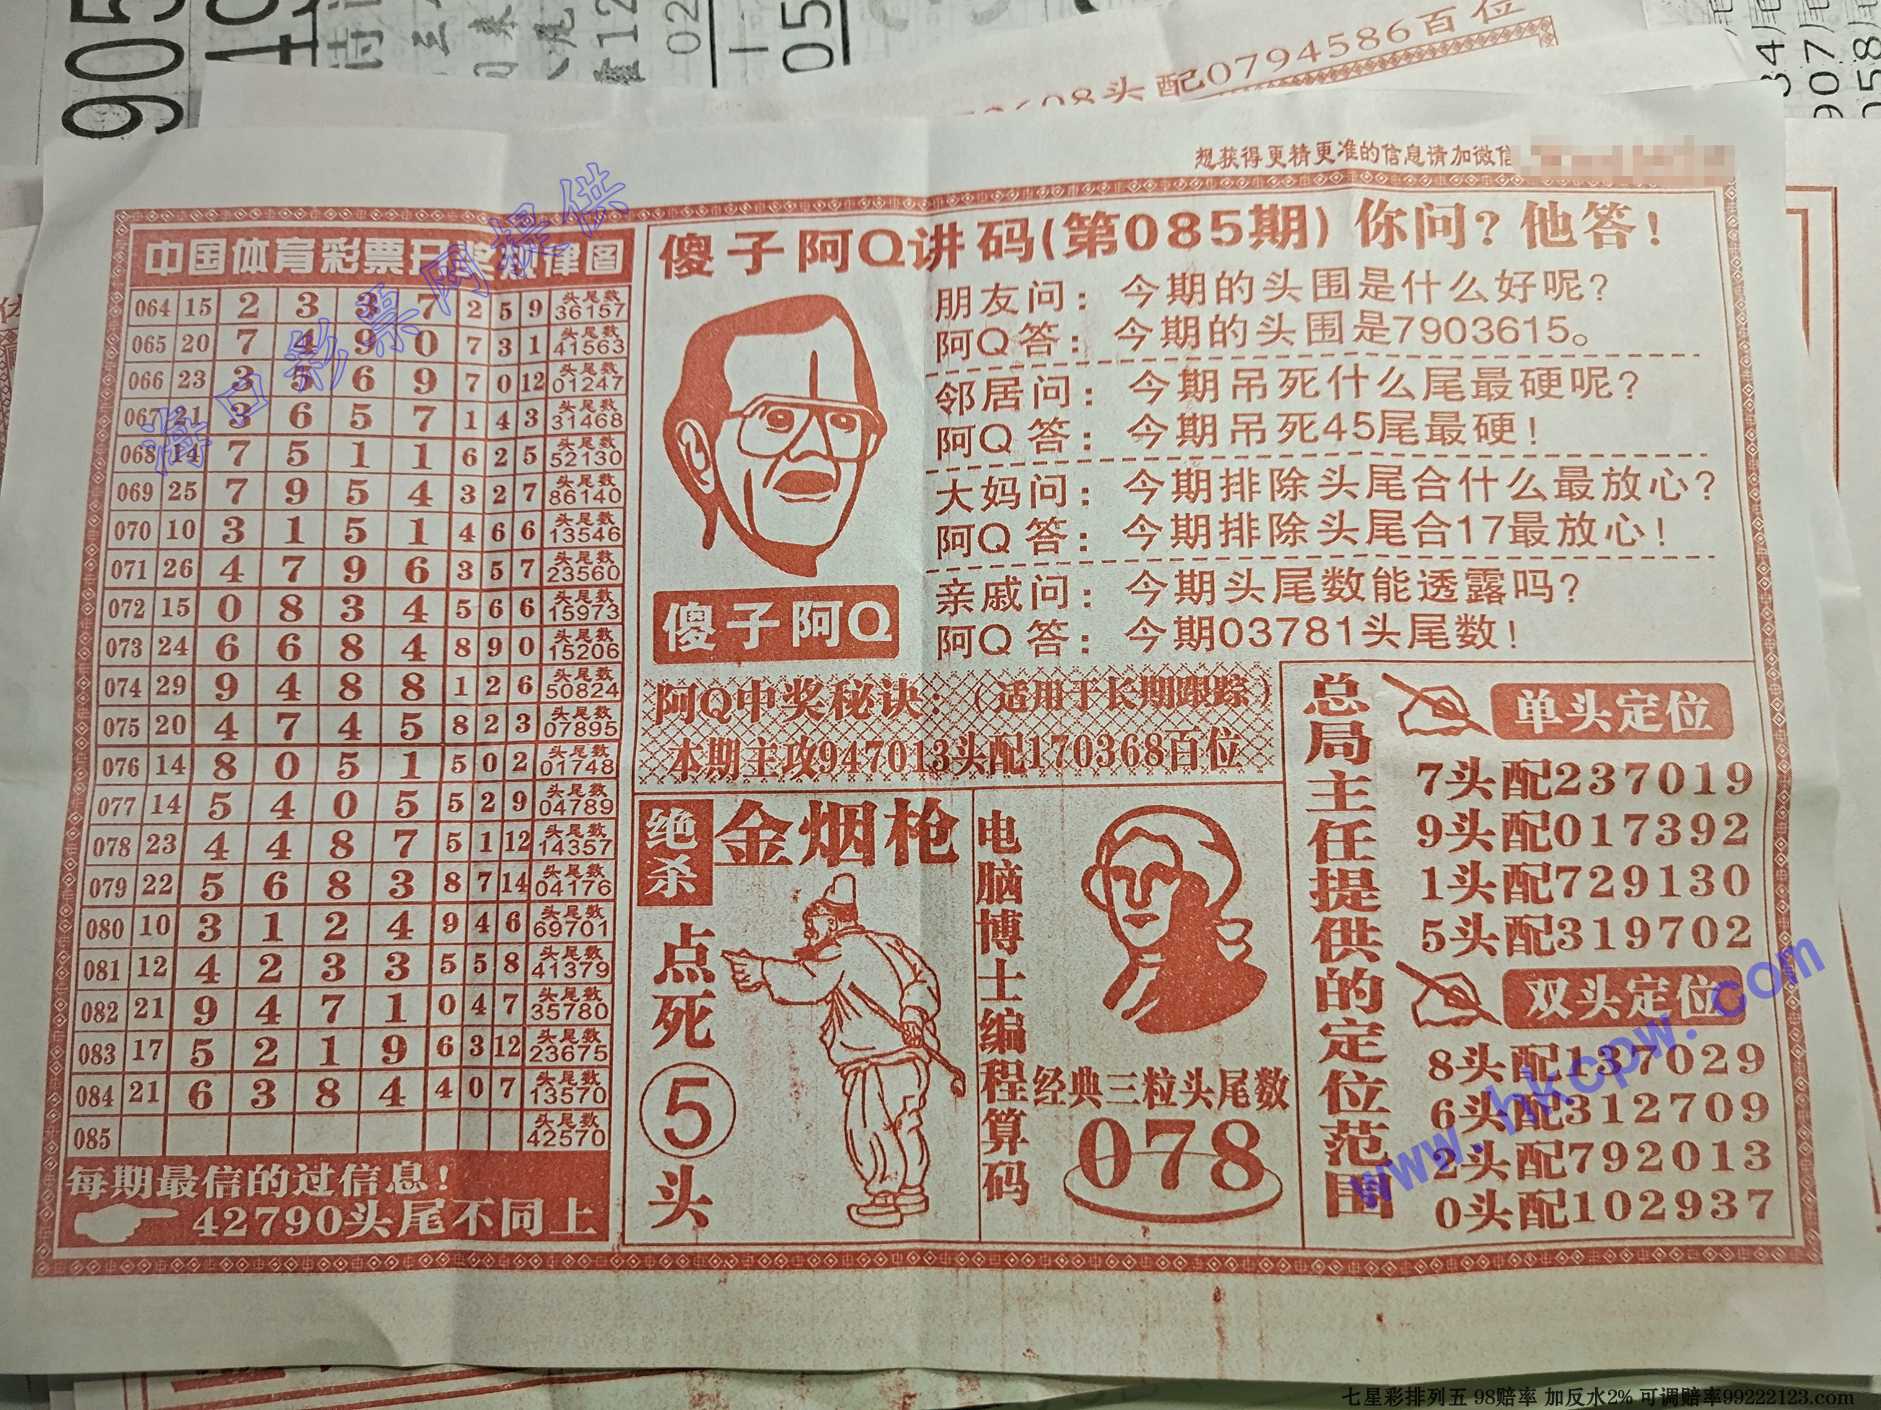 905
想获得更精更准的信息请加微信
608头配0794586百位
中国体育彩票开奖规律图
064 15 2 3 3 7 2 5 9 头尾数 36157
065 20 7 4 9 0 7 3 1 头尾数 41563
066 23 3 5 6 9 7 0 12 头尾数 01247
067 21 3 6 5 7 1 4 3 头尾数 31468
068 14 7 5 1 1 6 2 5 头尾数 52130
069 25 7 9 5 4 3 2 7 头尾数 86140
070 10 3 1 5 1 4 6 6 头尾数 13546
071 26 4 7 9 6 3 5 7 头尾数 23560
072 15 0 8 3 4 5 6 6 头尾数 15973
073 24 6 6 8 4 8 9 0 头尾数 15206
074 29 9 4 8 8 1 2 6 头尾数 50824
075 20 4 7 4 5 8 2 3 头尾数 07895
076 14 8 0 5 1 5 0 2 头尾数 01748
077 14 5 4 0 5 5 2 9 头尾数 04789
078 23 4 4 8 7 5 1 12 头尾数 14357
079 22 5 6 8 3 8 7 14 头尾数 04176
080 10 3 1 2 4 9 4 6 头尾数 69701
081 12 4 2 3 3 5 5 8 头尾数 41379
082 21 9 4 7 1 0 4 7 头尾数 35780
083 17 5 2 1 9 6 3 12 头尾数 23675
084 21 6 3 8 4 4 0 7 头尾数 13570
085 头尾数 42570
每期最信的过信息!
42790头尾不同上
傻子阿Q讲码(第085期)你问?他答!
朋友问：今期的头围是什么好呢?
阿Q答：今期的头围是7903615。
邻居问：今期吊死什么尾最硬呢?
阿Q答：今期吊死45尾最硬!
大妈问：今期排除头尾合什么最放心?
阿Q答：今期排除头尾合17最放心!
亲戚问：今期头尾数能透露吗?
阿Q答：今期03781头尾数!
傻子阿Q
阿Q中奖秘诀：(适用于长期跟踪)
本期主攻947013头配170368百位
绝杀
金烟枪
点死⑤头
电脑博士编程算码
经典三粒头尾数
078
总局主任提供的定位范围
单头定位
7头配237019
9头配017392
1头配729130
5头配319702
双头定位
8头配137029
6头配312709
2头配792013
0头配102937
海口彩票网提供
www.hkcpw.com
七星彩排列五 98赔率 加反水2% 可调赔率99222123.com